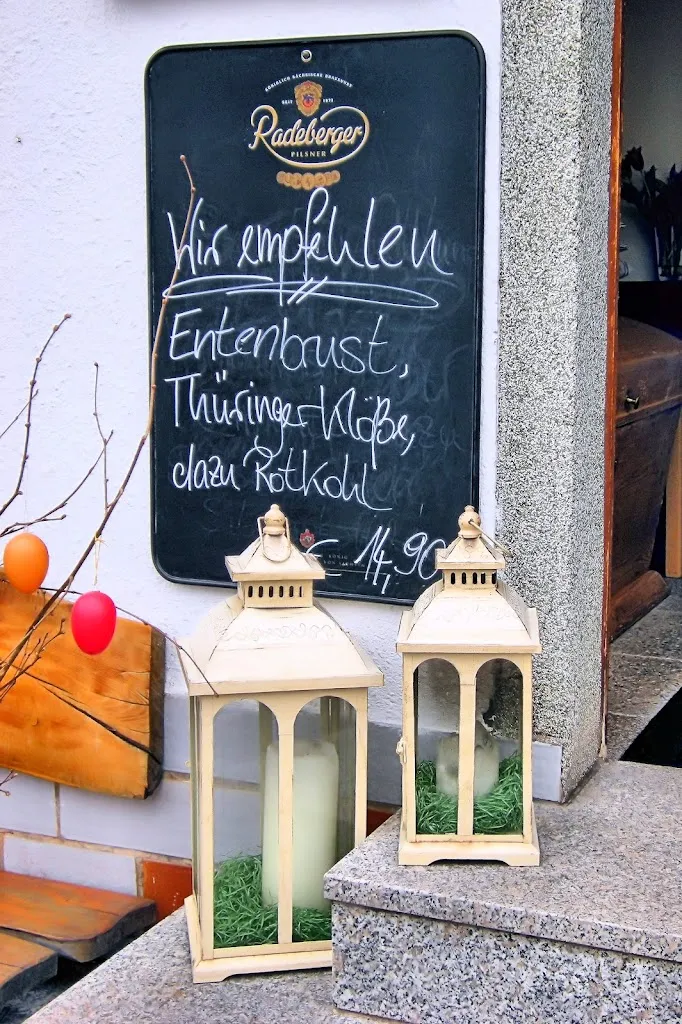 KÖNIGLICH SÄCHSISCHE BRAUKUNST
SEIT 1872
Radeberger
PILSNER
Wir empfehlen
Entenbrust,
Thüringer Klöße,
dazu Rotkohl
€ 14,90